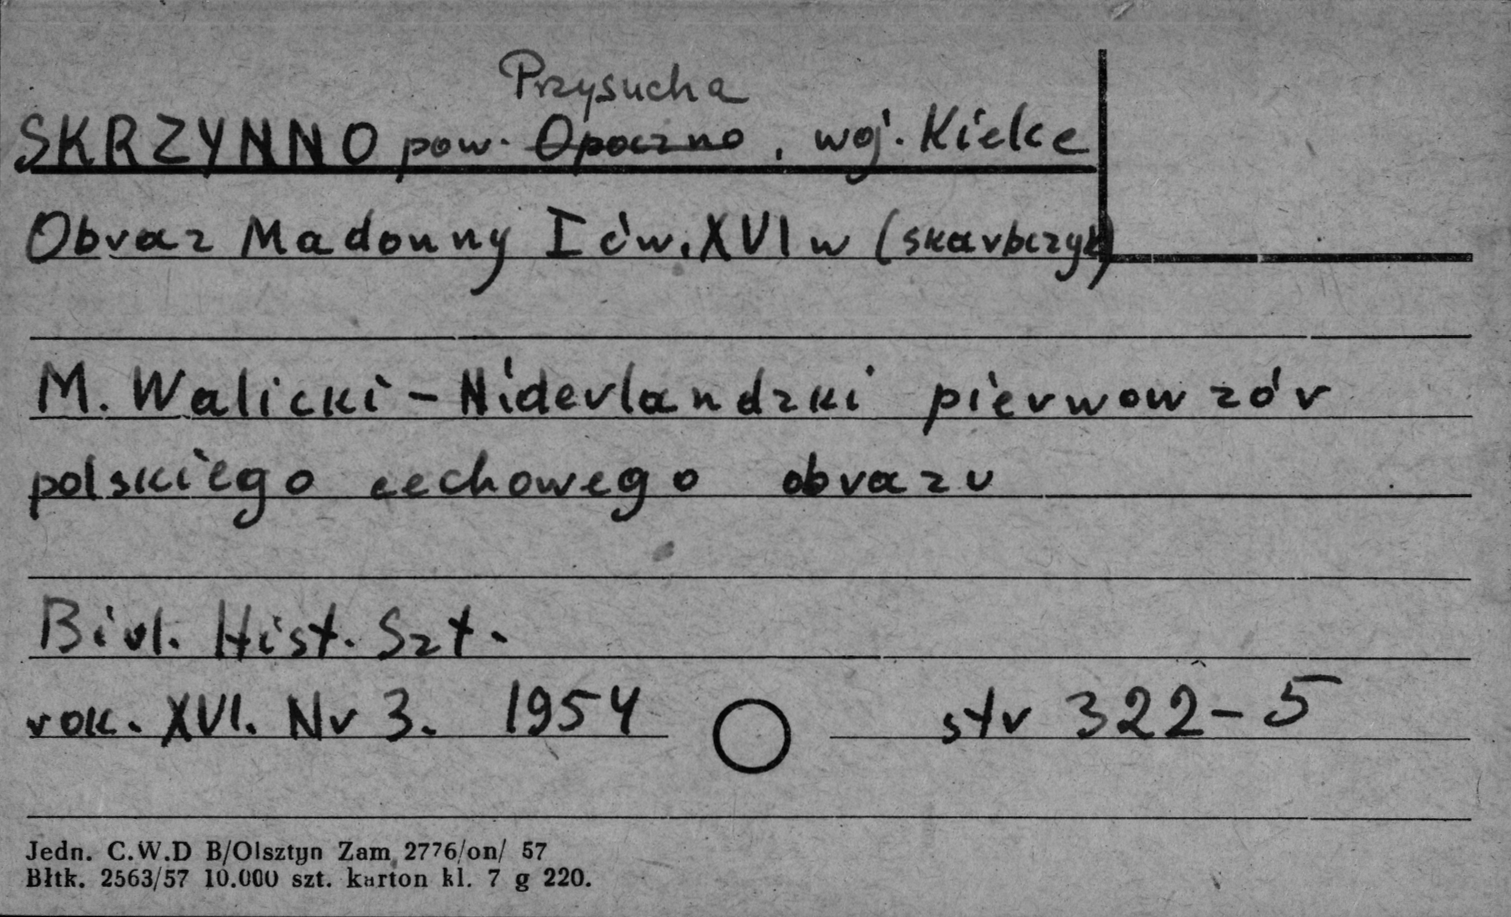 Przysucha
SKRZYNNO pow. Opoczno, woj. Kielce
Obraz Madonny I ćw. XVI w (skarbczyk)
M. Walicki - Niderlandzki pierwowzór
polskiego cechowego obrazu
Biul. Hist. Szt.
rok. XVI. Nr 3. 1954 str 322-5
Jedn. C.W.D B/Olsztyn Zam 2776/on/ 57
Błtk. 2563/57 10.000 szt. karton kl. 7 g 220.